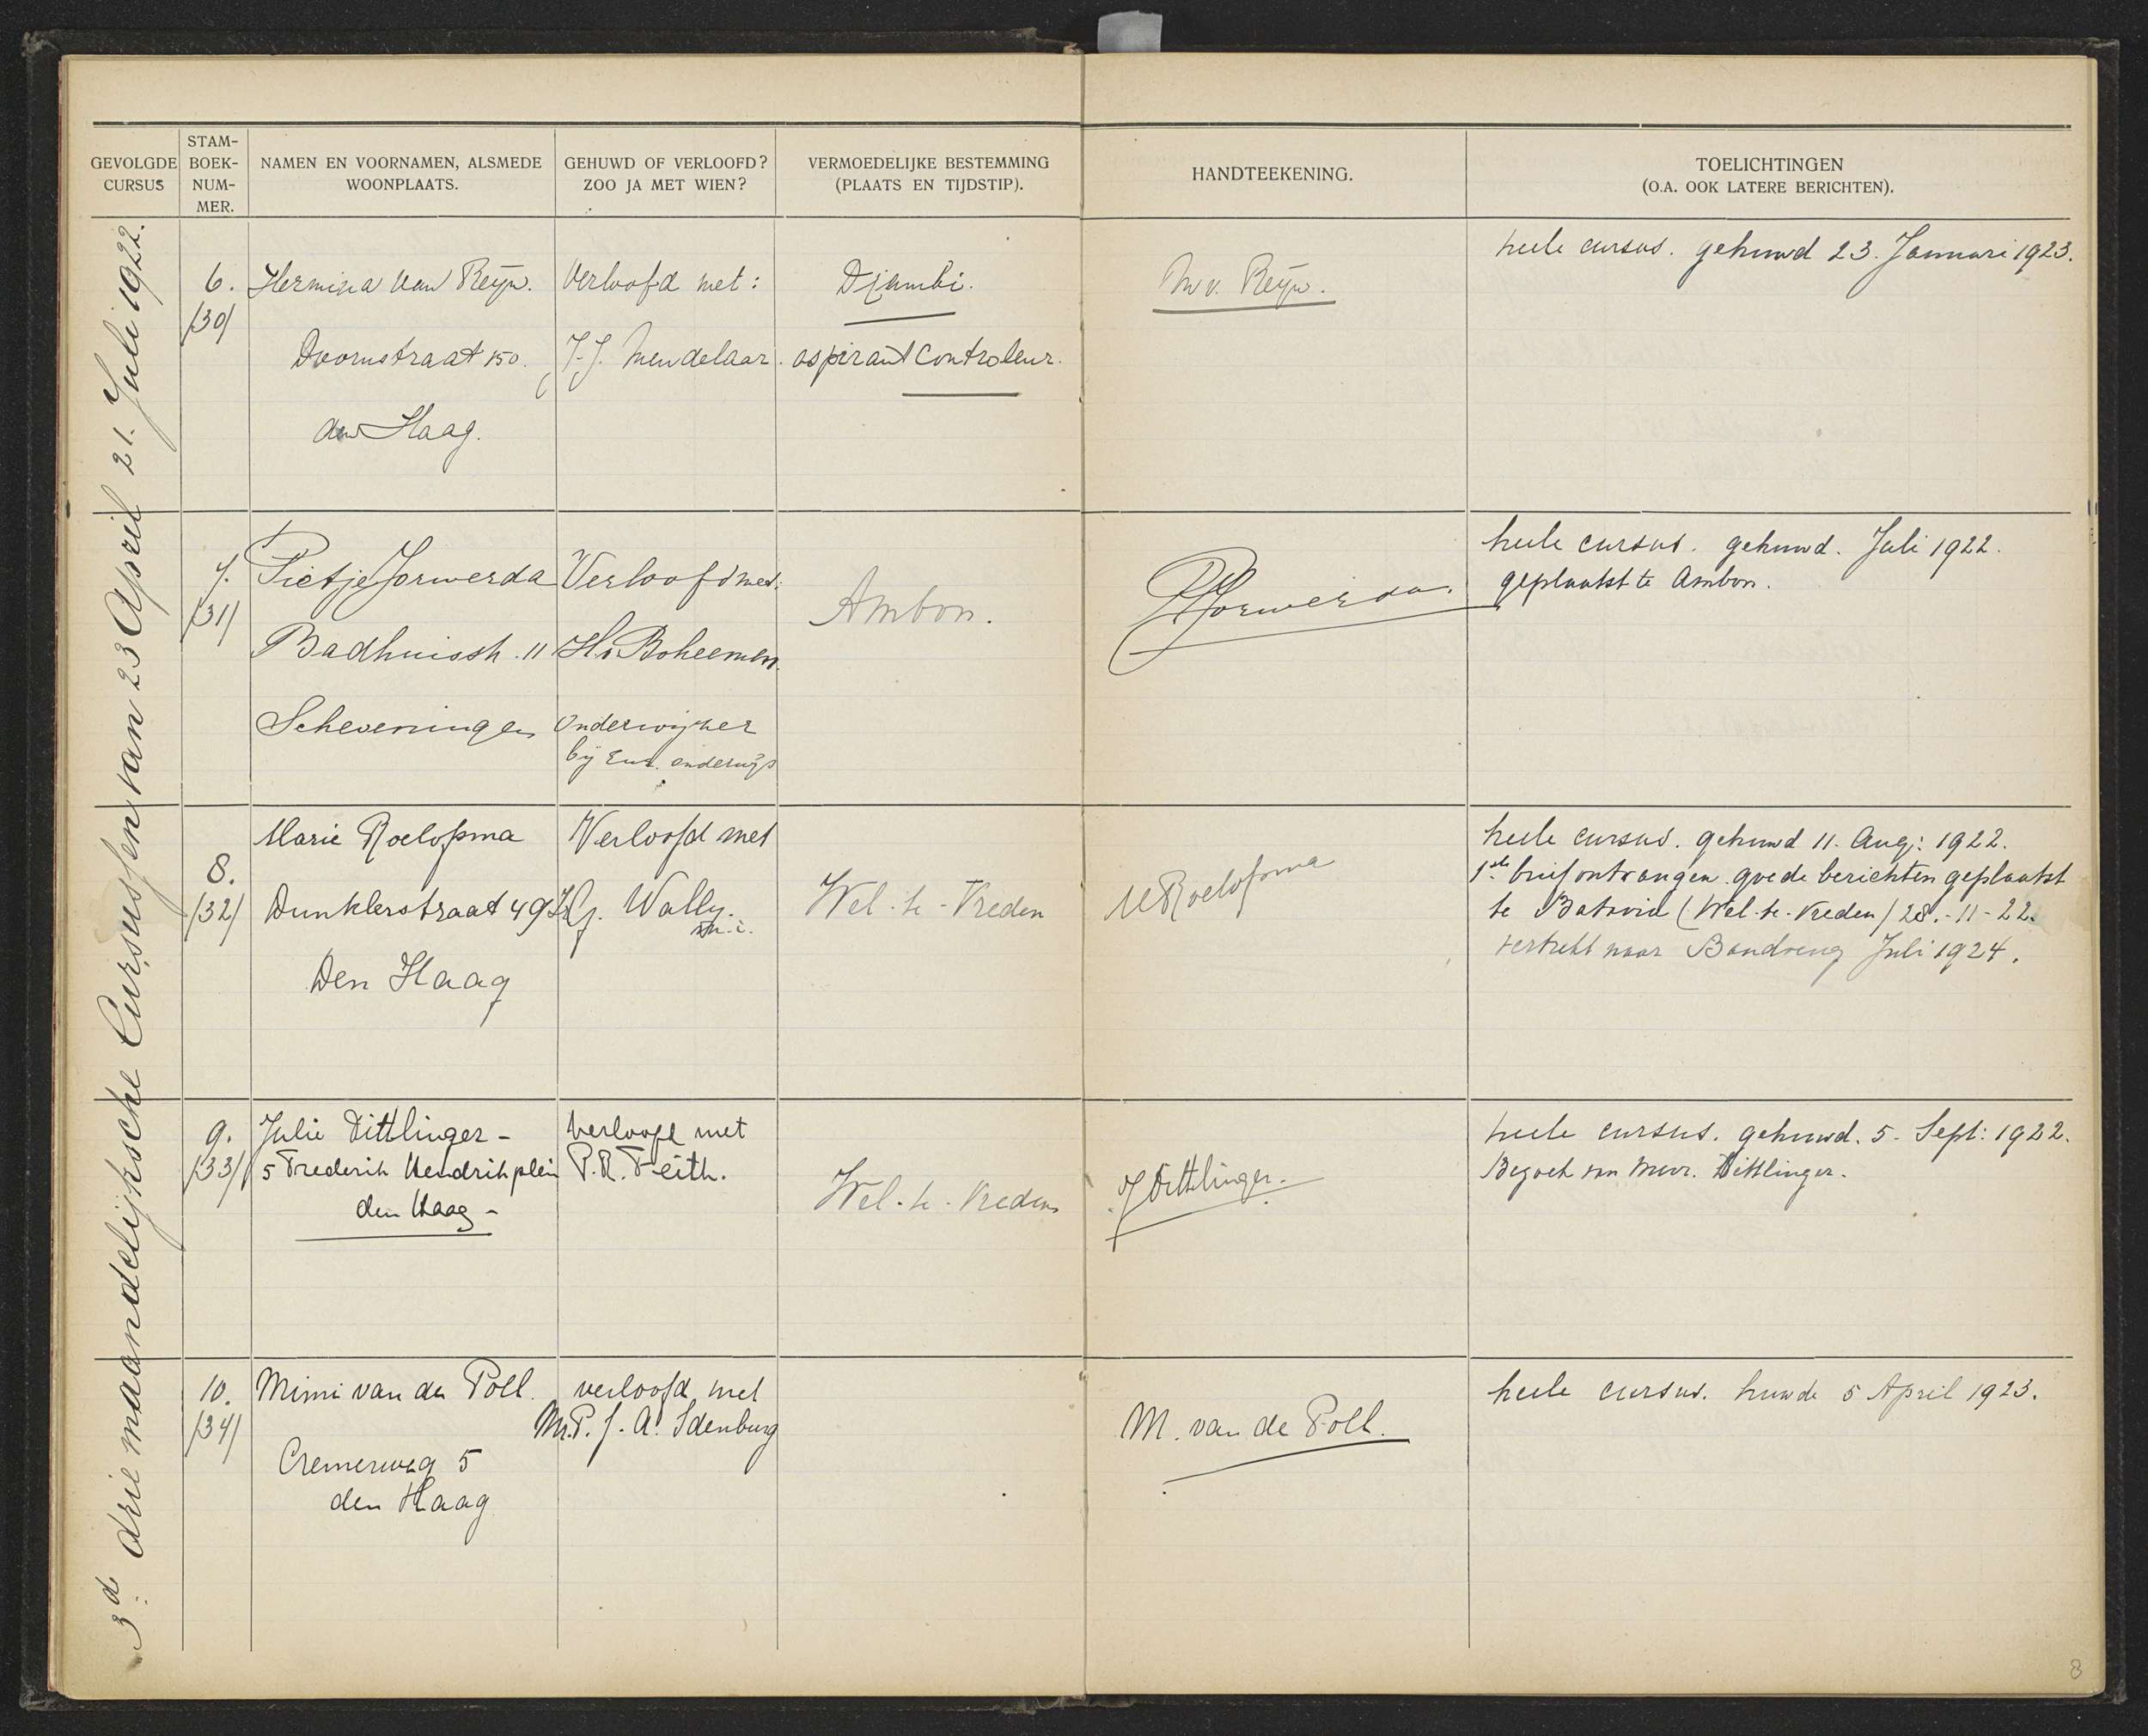 GEVOLGDE
CURSUS
STAM-
BOEK-
NUM-
MER.
NAMEN EN VOORNAMEN, ALSMEDE
WOONPLAATS.
GEHUWD OF VERLOOFD?
ZOO JA MET WIEN?
VERMOEDELIJKE BESTEMMING
(PLAATS EN TIJDSTIP).
HANDTEEKENING.
TOELICHTINGEN
(O.A. OOK LATERE BERICHTEN).
3de drie maandelijksche Cursussen van 23 April 21. Juli 1922.
6.
/30/
Hermina van Reijn.
Doornstraat 150.
den Haag.
Verloofd met:
J.J. Mendelaar.
Djambi.
aspirant Controleur.
M v. Reijn.
heele cursus. gehuwd 23. Januari 1923.
7.
/31/
Pietje Jorwerda
Badhuisstr. 11
Scheveningen
Verloofd met:
H. v. Boheemen
Onderwijzer
bij Eur. onderwijs
Ambon.
P Jorwerda.
heele cursus. gehuwd. Juli 1922.
geplaatst te Ambon.
8.
/32/
Marie Roelofsma
Dunklerstraat 49
Den Haag
Verloofd met
Wally.
Wel-te-Vreden
M Roelofsma
heele cursus. gehuwd 11. Aug: 1922.
1ste brief ontvangen goede berichten geplaatst
te Batavia (Wel-te-Vreden) 28.-11-22.
vertrekt naar Bandoeng Juli 1924.
9.
/33/
Julie Dittlinger -
5 Frederik Hendrikplein
den Haag -
Verloofd met
P.R. Feith.
Wel-te-Vreden
J Dittlinger.
heele cursus. gehuwd. 5. Sept: 1922.
Bezoek van Mevr. Dittlinger.
10.
/34/
Mimi van de Poll.
Cremerweg 5
den Haag
verloofd met
Mr. P. J. A. Idenburg
M. van de Poll.
heele cursus. huwde 5 April 1923.
8